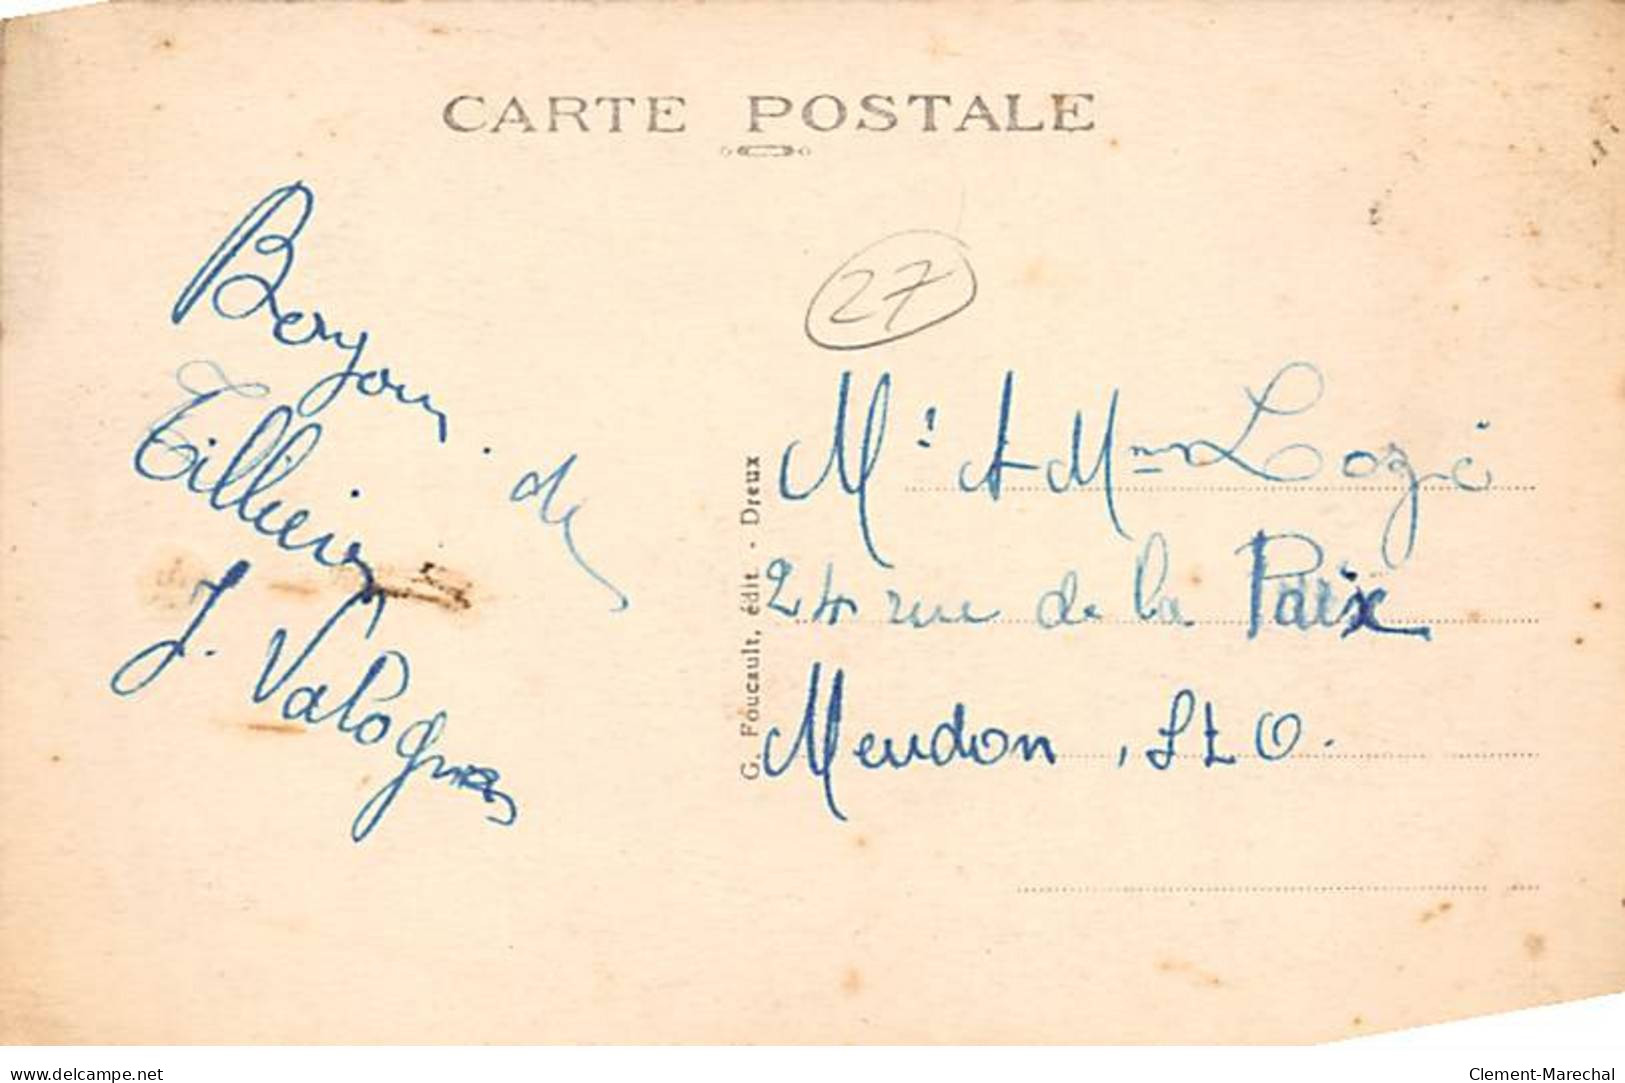 CARTE POSTALE
27
Bonjour de
Tillières
J. Valognes
G. Foucault, édit. - Dreux
Mr & Mme
24 rue de la Paix
Meudon, S & O.
delcampe.net
Clement-Marechal